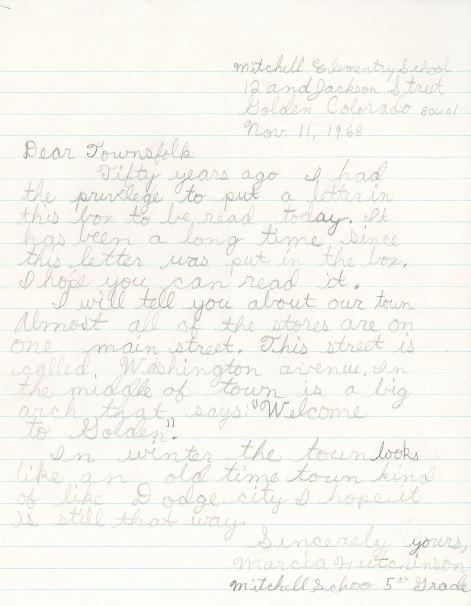 Mitchell Elementry School
12 and Jackson Street
Golden Colorado 80401
Nov. 11, 1968
Dear Townsfolk
Fifty years ago I had
the privelege to put a letter in
this box to be read today. It
has been a long time since
this letter was put in the box.
I hope you can read it.
I will tell you about our town
Almost all of the stores are on
one main street. This street is
called, Washington avenue. In
the middle of town is a big
arch that says: "Welcome
to Golden".
In winter the town looks
like an old time town kind
of like Dodge city I hope it
is still that way.
Sincerely yours,
Marcia Hutchinson
Mitchell Schoo 5th Grade